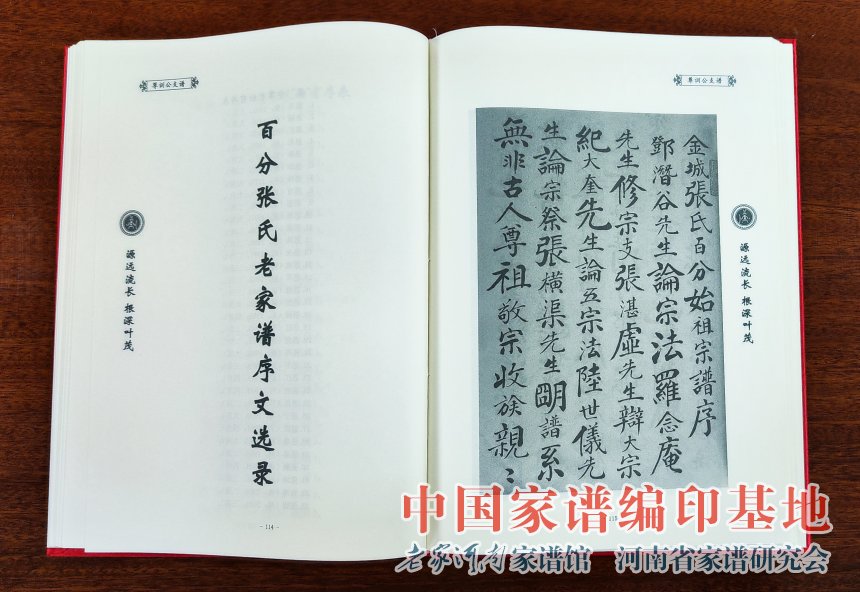 尊训公支谱
百分张氏老家谱序文选录
源远流长 根深叶茂
- 114 -
尊训公支谱
金城張氏百分始祖宗譜序
鄧潛谷先生論宗法羅念庵
先生修宗支張湛虛先生辯大宗
紀大奎先生論五宗法陸世儀先
生論宗祭張橫渠先生明譜系
無非古人尊祖敬宗收族親〻
源远流长 根深叶茂
中国家谱编印基地
老家河南家谱馆 河南省家谱研究会